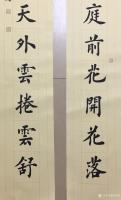 庭前花開花落
天外雲捲雲舒